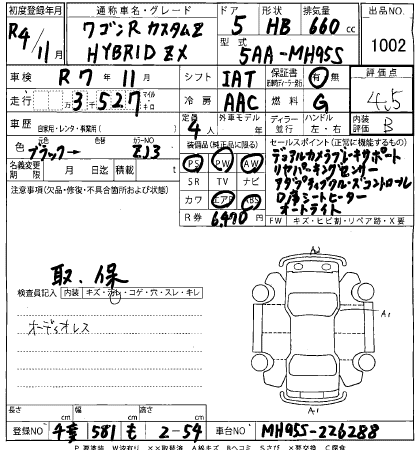 初度登録年月 通称車名・グレード ドア 形状 排気量 出品NO
R4/11月 ワゴンR カスタムZ HYBRID ZX 5 HB 660 cc 1002
型式 5AA-MH95S
車検 R7年11月 シフト IAT 保証書 有 無 評価点
走行 3,527 マイル キロ 冷房 AAC 燃料 G 4.5
車歴 自家用・レンタ・事業用( ) 定員 4人 外車モデル 年 ディーラー 並行 ハンドル 左・右 内装評価 B
色 元色 ブラック→ 色 カラーNO ZJ3 装備品(純正品に限る) セールスポイント(正常に機能するもの)
名義変更期限 月 日 積載 t PS PW AW
デュアルカメラブレーキサポート
注意事項(欠品・修復・不具合箇所および状態) SR TV ナビ
リヤパーキングセンサー
カワ エアB ABS
アダプティブクルーズコントロール
R券 6,470円
D/席シートヒーター
オートライト
FW キズ・ヒビ割・リペア跡・X要
取、保
検査員記入 内装 キズ・汚レ・コゲ・穴・スレ・キレ
オーディオレス
A2
A1
A1
長さ cm 幅 cm 高さ cm
登録NO 581 も 2-54 車台NO MH95S-226288
P要塗装 W波有り ××取替済 A線キズ Bヘコミ Sさび ×要交換 C腐食